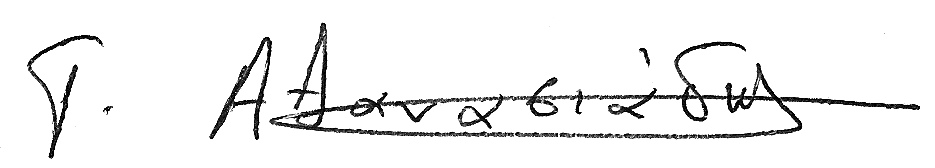 Τ. Αθανασιάδης